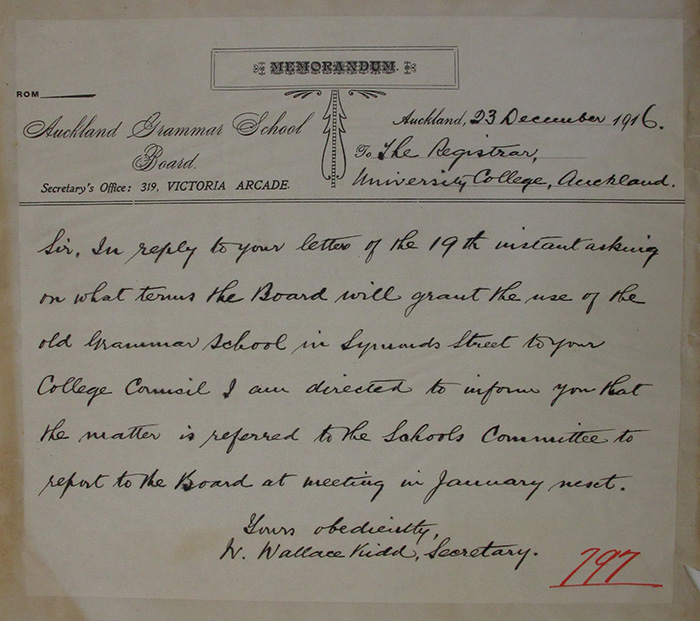 MEMORANDUM.
ROM
Auckland Grammar School
Board.
Secretary's Office: 319, VICTORIA ARCADE.
Auckland, 23 December 1916.
To The Registrar,
University College, Auckland.
Sir, In reply to your letter of the 19th instant asking
on what terms the Board will grant the use of the
old Grammar School in Symonds Street to your
College Council I am directed to inform you that
the matter is referred to the Schools Committee to
report to the Board at meeting in January next.
Yours obediently,
W. Wallace Kidd, Secretary.
797